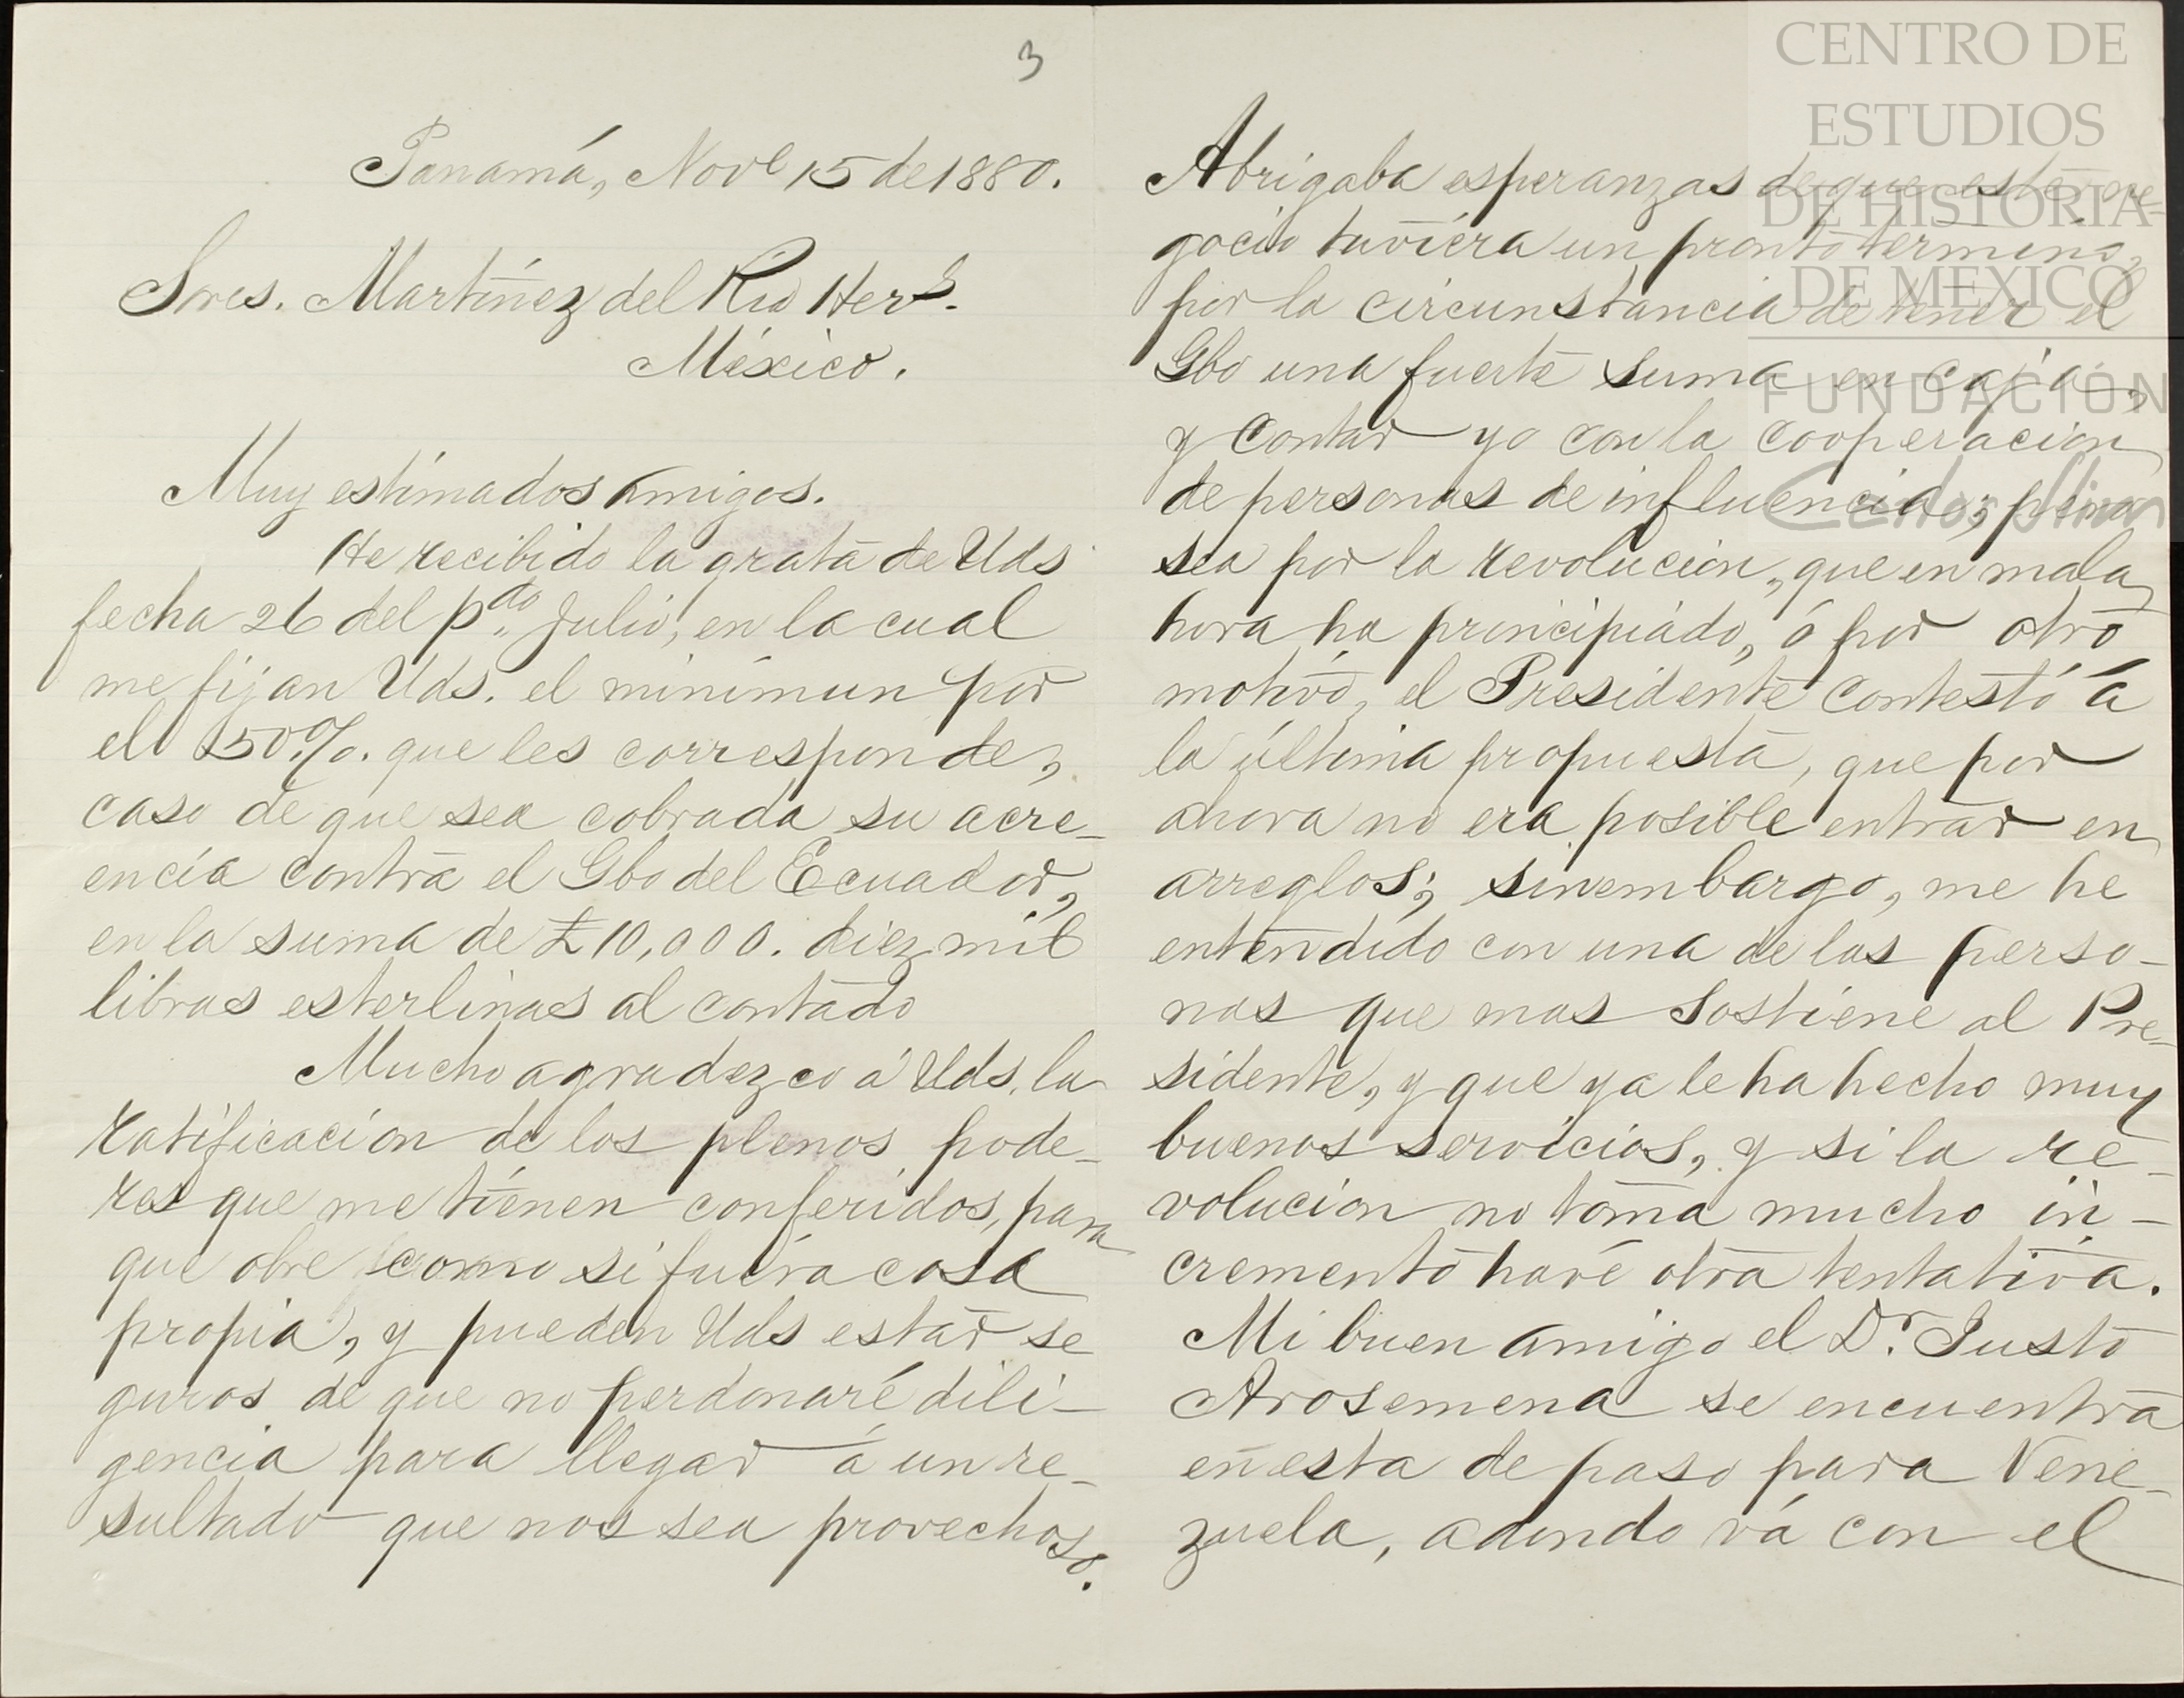 3
Panamá, Nov.e 15 de 1880.
Sres. Martínez del Rio Her.s
México.
Muy estimados amigos.
He recibido la grata de Uds
fecha 26 del p.do Julio, en la cual
me fijan Uds. el minimun por
el 50%. que les corresponde,
caso de que sea cobrada su acre-
encia contra el Gbo del Ecuador,
en la suma de £10,000. diez mil
libras esterlinas al contado
Mucho agradezco á Uds. la
ratificacion de los plenos pode-
res que me tienen conferidos, para
que obre como si fuera cosa
propia, y pueden Uds estar se
guros de que no perdonaré dili-
gencia para llegar á un re-
sultado que nos sea provechoso.
Abrigaba esperanzas de que este ne-
gocio tuviera un pronto termino,
por la circunstancia de tener el
Gbo una fuerte suma en caja,
y contar yo con la cooperacion
de personas de influencia; pero
sea por la revolucion, que en mala
hora ha principiado, ó por otro
motivo, el Presidente contestó á
la última propuesta, que por
ahora no era posible entrar en
arreglos; sinembargo, me he
entendido con una de las perso-
nas que mas sostiene al Pre-
sidente, y que ya le ha hecho muy
buenos servicios, y si la re-
volucion no toma mucho in-
cremento haré otra tentativa.
Mi buen amigo el D.r Justo
Arosemena se encuentra
en esta de paso para Vene-
zuela, adonde vá con el
CENTRO DE
ESTUDIOS
DE HISTORIA
DE MEXICO
FUNDACIÓN
Carlos Slim